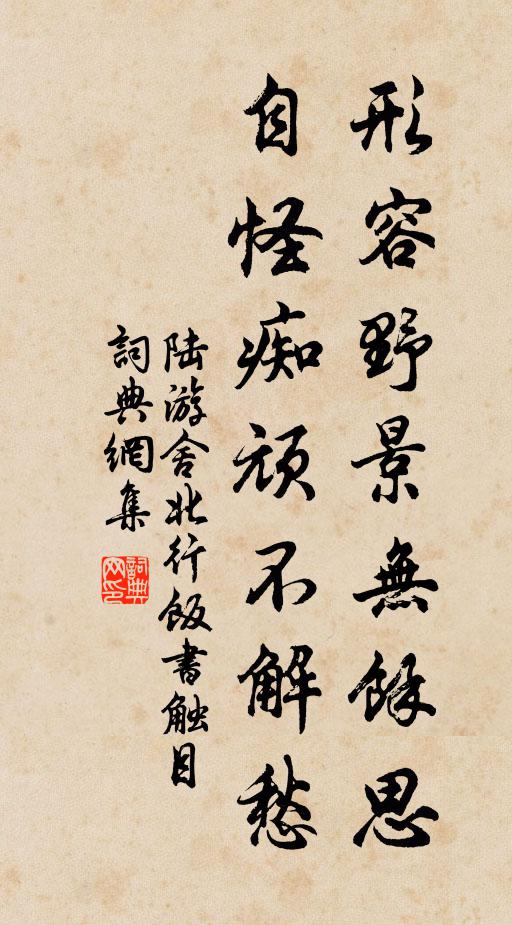 形容野景無餘思
自怪痴頑不解愁
陆游舍北行飯書触目
詞典網集
詞典网印